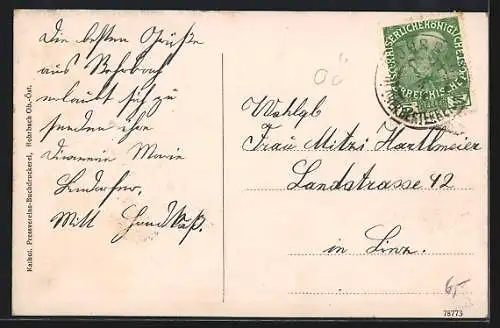 Die besten Grüße
aus Rohrbach
erlaubt sich zu
senden ihre
Dienerin Marie
Mitt Handkuß.
Kathol. Pressvereins-Buchdruckerei, Rohrbach Ob.-Öst.
KAISERLICHE KÖNIGLICHE
OÖ
Wohlgb
Frau Mitzi Hartlmeier
Landstrasse 42
in Linz.
6,-
78773